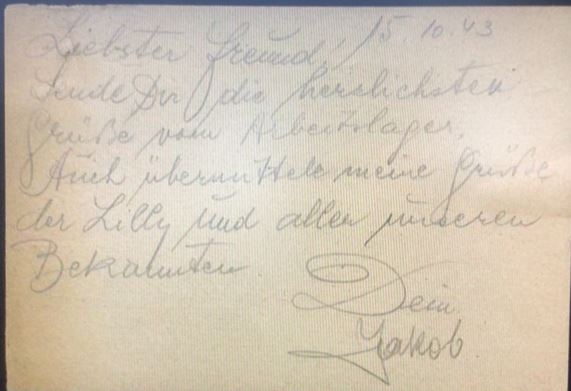 Liebster Freund! 15.10.43
Sende Dir die herzlichsten
Grüße vom Arbeitslager.
Auch übermittele meine Grüße
der Lilly und allen unseren
Bekannten.
Dein
Jakob